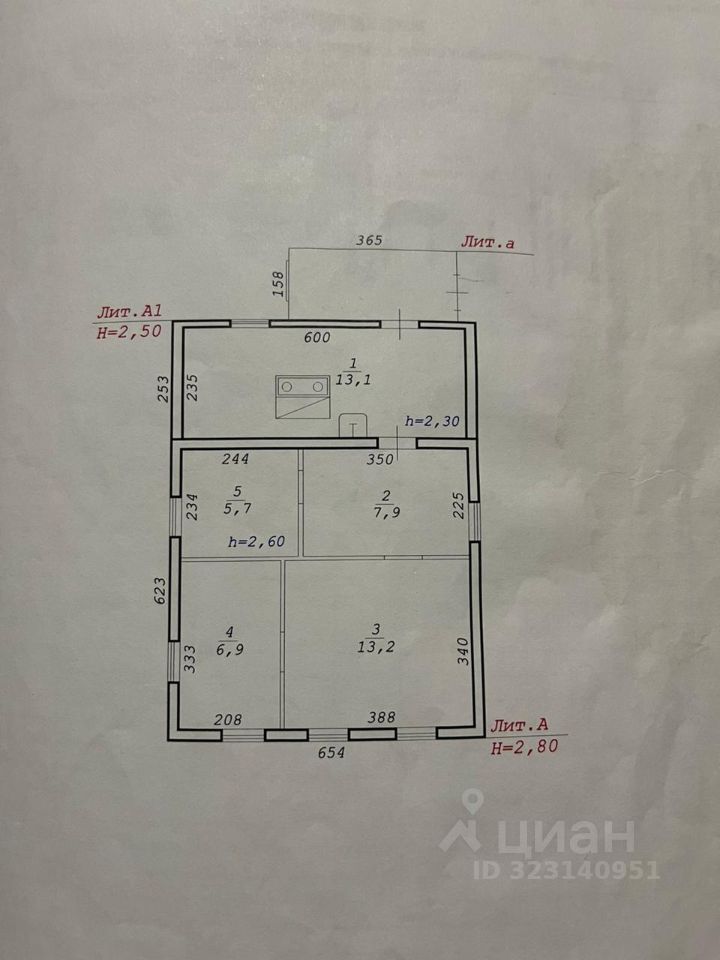 365
Лит.а
158
Лит.А1
Н=2,50
600
253
235
1
13,1
h=2,30
244
350
234
5
5,7
2
7,9
225
h=2,60
623
333
4
6,9
3
13,2
340
208
388
654
Лит.А
Н=2,80
циан
ID 323140951